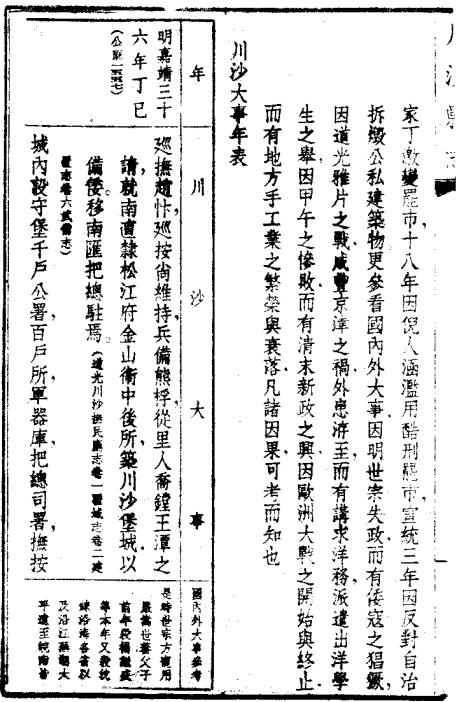 家丁激變罷市十八年因倪人涵濫用酷刑罷市宣統三年因反對自治
拆燬公私建築物更參看國內外大事因明世宗失政而有倭寇之猖獗
因道光雅片之戰咸豐京津之禍外患洊至而有講求洋務派遣出洋學
生之舉因甲午之慘敗而有清末新政之興因歐洲大戰之開始與終止
而有地方手工業之繁榮與衰落凡諸因果可考而知也
川沙大事年表
年
川沙大事
國內外大事參考
明嘉靖三十
六年丁巳
(公元一五五七)
巡撫趙忻巡按尚維持兵備熊桴從里人喬鏜王潭之
請就南直隸松江府金山衞中後所築川沙堡城以
備倭移南匯把總駐焉。(道光川沙撫民廳志卷一疆域志卷二建
置志卷六武備志)
城內設守堡千戶公署百戶所軍器庫把總司署撫按
是時世宗方寵用
嚴嵩世蕃父子
前年殺楊繼盛
等本年又殺沈
鍊沿海各省以
及沿江
平遠至皖南皆